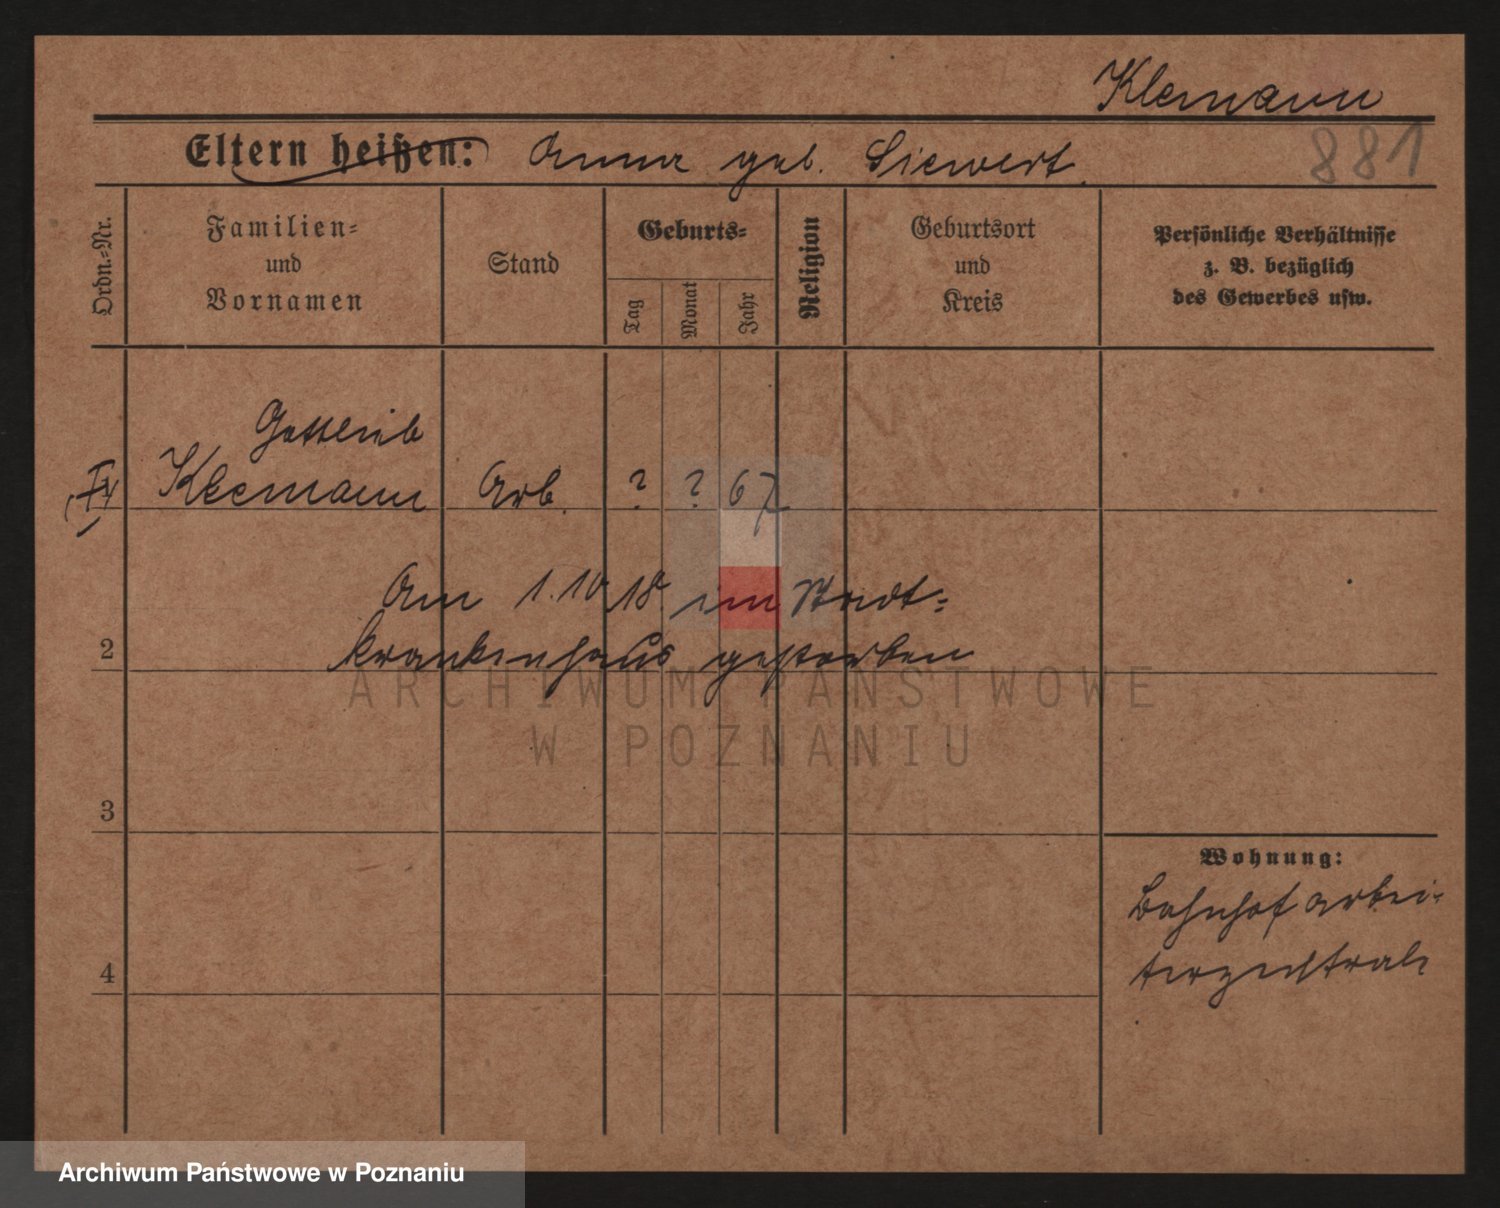 Klemann
881
Eltern heißen: Anna geb. Siewert.
Ordn.-Nr.
Familien-
und
Vornamen
Stand
Geburts-
Tag
Monat
Jahr
Religion
Geburtsort
und
Kreis
Persönliche Verhältnisse
z. B. bezüglich
des Gewerbes usw.
Gottlieb
Klemann Arb. ? ? 67
Am 1.10.18. im Stadt-
2
krankenhaus gestorben
ARCHIWUM PAŃSTWOWE
W POZNANIU
3
Wohnung:
Bahnhof arbei-
terzentrale
4
Archiwum Państwowe w Poznaniu